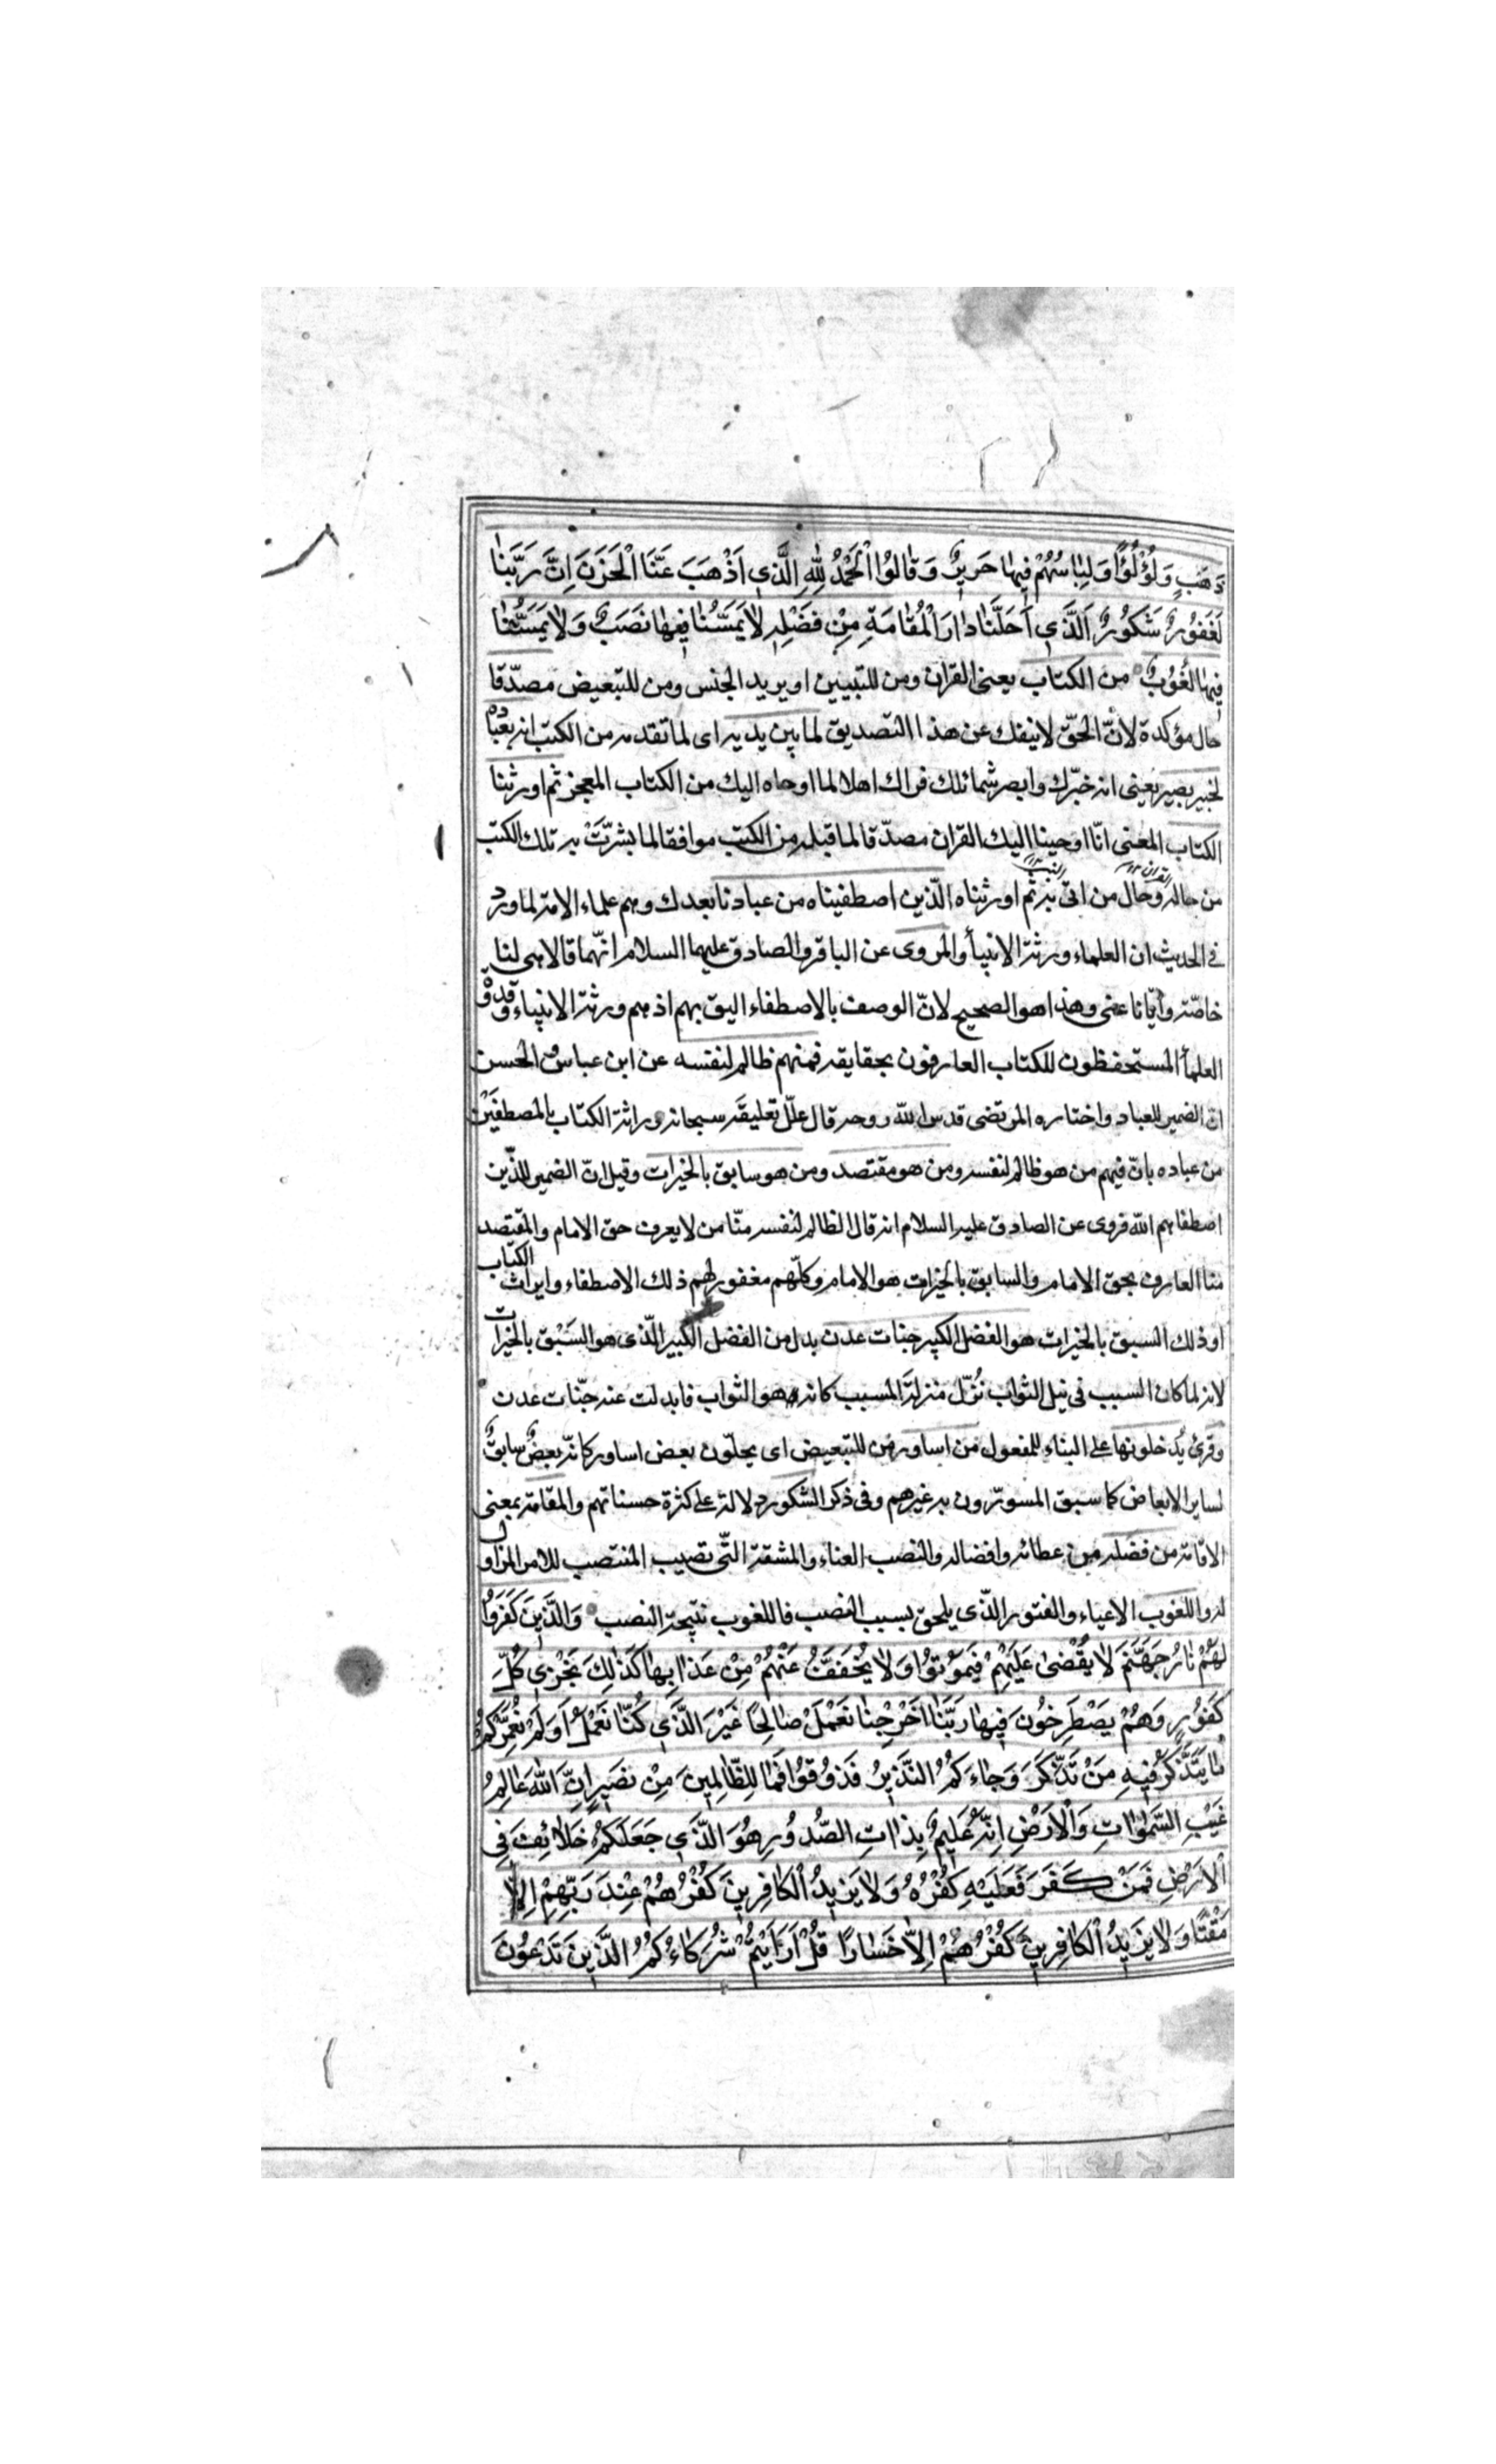 ذَهَبٍ وَلُؤْلُؤًا وَلِبَاسُهُمْ فِيهَا حَرِيرٌ وَقَالُوا الْحَمْدُ لِلّٰهِ الَّذِي اَذْهَبَ عَنَّا الْحَزَنَ اِنَّ رَبَّنَا
لَغَفُورٌ شَكُورٌ اَلَّذِي اَحَلَّنَا دَارَ الْمُقَامَةِ مِنْ فَضْلِهِ لَا يَمَسُّنَا فِيهَا نَصَبٌ وَلَا يَمَسُّنَا
فِيهَا لُغُوبٌ من الكتاب يعنى القران ومن للتبيين او يريد الجنس ومن للتبعيض مصدّقا
حال مؤكدة لانّ الحقّ لا ينفك عن هذا التصديق لما بين يديه اى لما تقدمه من الكتب انه بعباده
لخبير بصير يعنى انه خبّرك وابصر شمائلك فراك اهلا لما اوحاه اليك من الكتاب المعجز ثم اورثنا
الكتاب المعنى انّا اوحينا اليك القران مصدّقا لما قبله من الكتب موافقا لما بشّرت به تلك الكتب
من حاله وحال من اتى به ثم اورثناه الّذين اصطفيناه من عبادنا بعدك وهم علماء الامة لما ورد
فى الحديث ان العلماء ورثة الانبيأ والمروى عن الباقر والصادق عليهما السلام انّهما قالا هى لنا
خاصّة وايّانا عنى وهذا هو الصحيح لانّ الوصف بالاصطفاء اليق بهم اذ هم ورثة الانبياء وقدوة
العلمأ المستحفظون للكتاب العارفون بحقايقه فمنهم ظالم لنفسه عن ابن عباس والحسن
ان الضمير للعباد واختاره المرتضى قدس الله روحه قال علّل تعليقه سبحانه وراثة الكتاب بالمصطفين
من عباده بانّ فيهم من هو ظالم لنفسه ومن هو مقتصد ومن هو سابق بالخيرات وقيل انّ الضمير للّذين
اصطفاهم الله فروى عن الصادق عليه السلام انه قال الظالم لنفسه منّا من لا يعرف حق الامام والمقتصد
منا العارف بحق الامام والسابق بالخيرات هو الامام وكلّهم مغفور لهم ذلك الاصطفاء وايراث الكتاب
او ذلك السبق بالخيرات هو الفضل الكبير جنات عدن بدل من الفضل الكبير الّذى هو السَبْق بالخيرات
لانه لما كان السبب فى نيل الثواب نُزّل منزلة المسبب كانه هو الثواب فابدلت عنه جنّات عدن
وقرئ يُدخلونها على البناء للمفعول من اساور من للتبعيض اى يحلّون بعض اساور كانّه بعضٌ سابقٌ
لساير الابعاض كما سبق المسوّرون به غيرهم وفى ذكر الشكور دلالة على كثرة حسناتهم والمقامة بمعنى
الاقامة من فضله من عطائه وافضاله والنصب العناء والمشقة التّى تصيب المنتصب للامر المزاول
له واللغوب الاعياء والفتور الذّى يلحق بسبب النصب فاللغوب نتيجة النصب وَالَّذِينَ كَفَرُوا
لَهُمْ نَارُ جَهَنَّمَ لَا يُقْضٰى عَلَيْهِمْ فَيَمُوتُوا وَلَا يُخَفَّفُ عَنْهُمْ مِنْ عَذَابِهَا كَذٰلِكَ نَجْزِي كُلَّ
كَفُورٍ وَهُمْ يَصْطَرِخُونَ فِيهَا رَبَّنَا اَخْرِجْنَا نَعْمَلْ صَالِحًا غَيْرَ الَّذِي كُنَّا نَعْمَلُ اَوَلَمْ نُعَمِّرْكُمْ
مَا يَتَذَكَّرُ فِيهِ مَنْ تَذَكَّرَ وَجَاءَكُمُ النَّذِيرُ فَذُوقُوا فَمَا لِلظَّالِمِينَ مِنْ نَصِيرٍ اِنَّ اللّٰهَ عَالِمُ
غَيْبِ السَّمٰوَاتِ وَالْاَرْضِ اِنَّهُ عَلِيمٌ بِذَاتِ الصُّدُورِ هُوَ الَّذِي جَعَلَكُمْ خَلَائِفَ فِي
الْاَرْضِ فَمَنْ كَفَرَ فَعَلَيْهِ كُفْرُهُ وَلَا يَزِيدُ الْكَافِرِينَ كُفْرُهُمْ عِنْدَ رَبِّهِمْ اِلَّا
مَقْتًا وَلَا يَزِيدُ الْكَافِرِينَ كُفْرُهُمْ اِلَّا خَسَارًا قُلْ اَرَاَيْتُمْ شُرَكَاءَكُمُ الَّذِينَ تَدْعُونَ